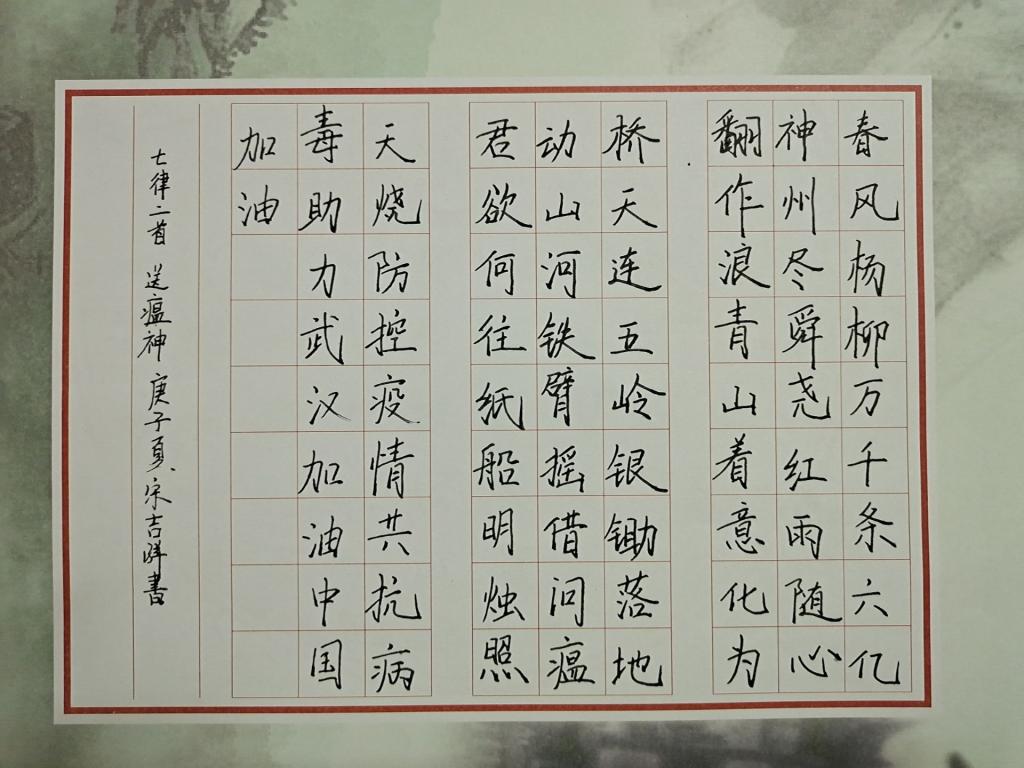 春风杨柳万千条六亿
神州尽舜尧红雨随心
翻作浪青山着意化为
桥天连五岭银锄落地
动山河铁臂摇借问瘟
君欲何往纸船明烛照
天烧防控疫情共抗病
毒助力武汉加油中国
加油
七律二首 送瘟神 庚子夏、宋吉祥书